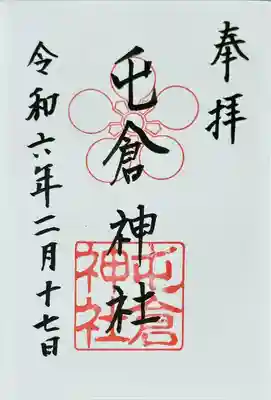 奉拝
屯倉神社
屯倉神社
令和六年二月十七日